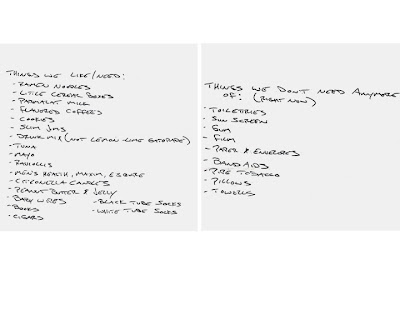 THINGS WE LIKE/NEED:
- RAMEN NOODLES
- LITTLE CEREAL BOXES
- PARMALAT MILK
- FLAVORED COFFEES
- COOKIES
- SLIM JIMS
- DRINK MIX (NOT LEMON-LIME GATORADE)
- TUNA
- MAYO
- RAVIOLIS
- MENS HEALTH, MAXIM, ESQUIRE
- CITRONELLA CANDLES
- PEANUT BUTTER & JELLY
- BABY WIPES - BLACK TUBE SOCKS
- BOOKS - WHITE TUBE SOCKS
- CIGARS
THINGS WE DON'T NEED ANYMORE
OF: (RIGHT NOW)
- TOILETRIES
- SUN SCREEN
- GUM
- FILM
- PAPER & ENVELOPES
- BANDAIDS
- PIPE TOBACCO
- PILLOWS
- TOWELS